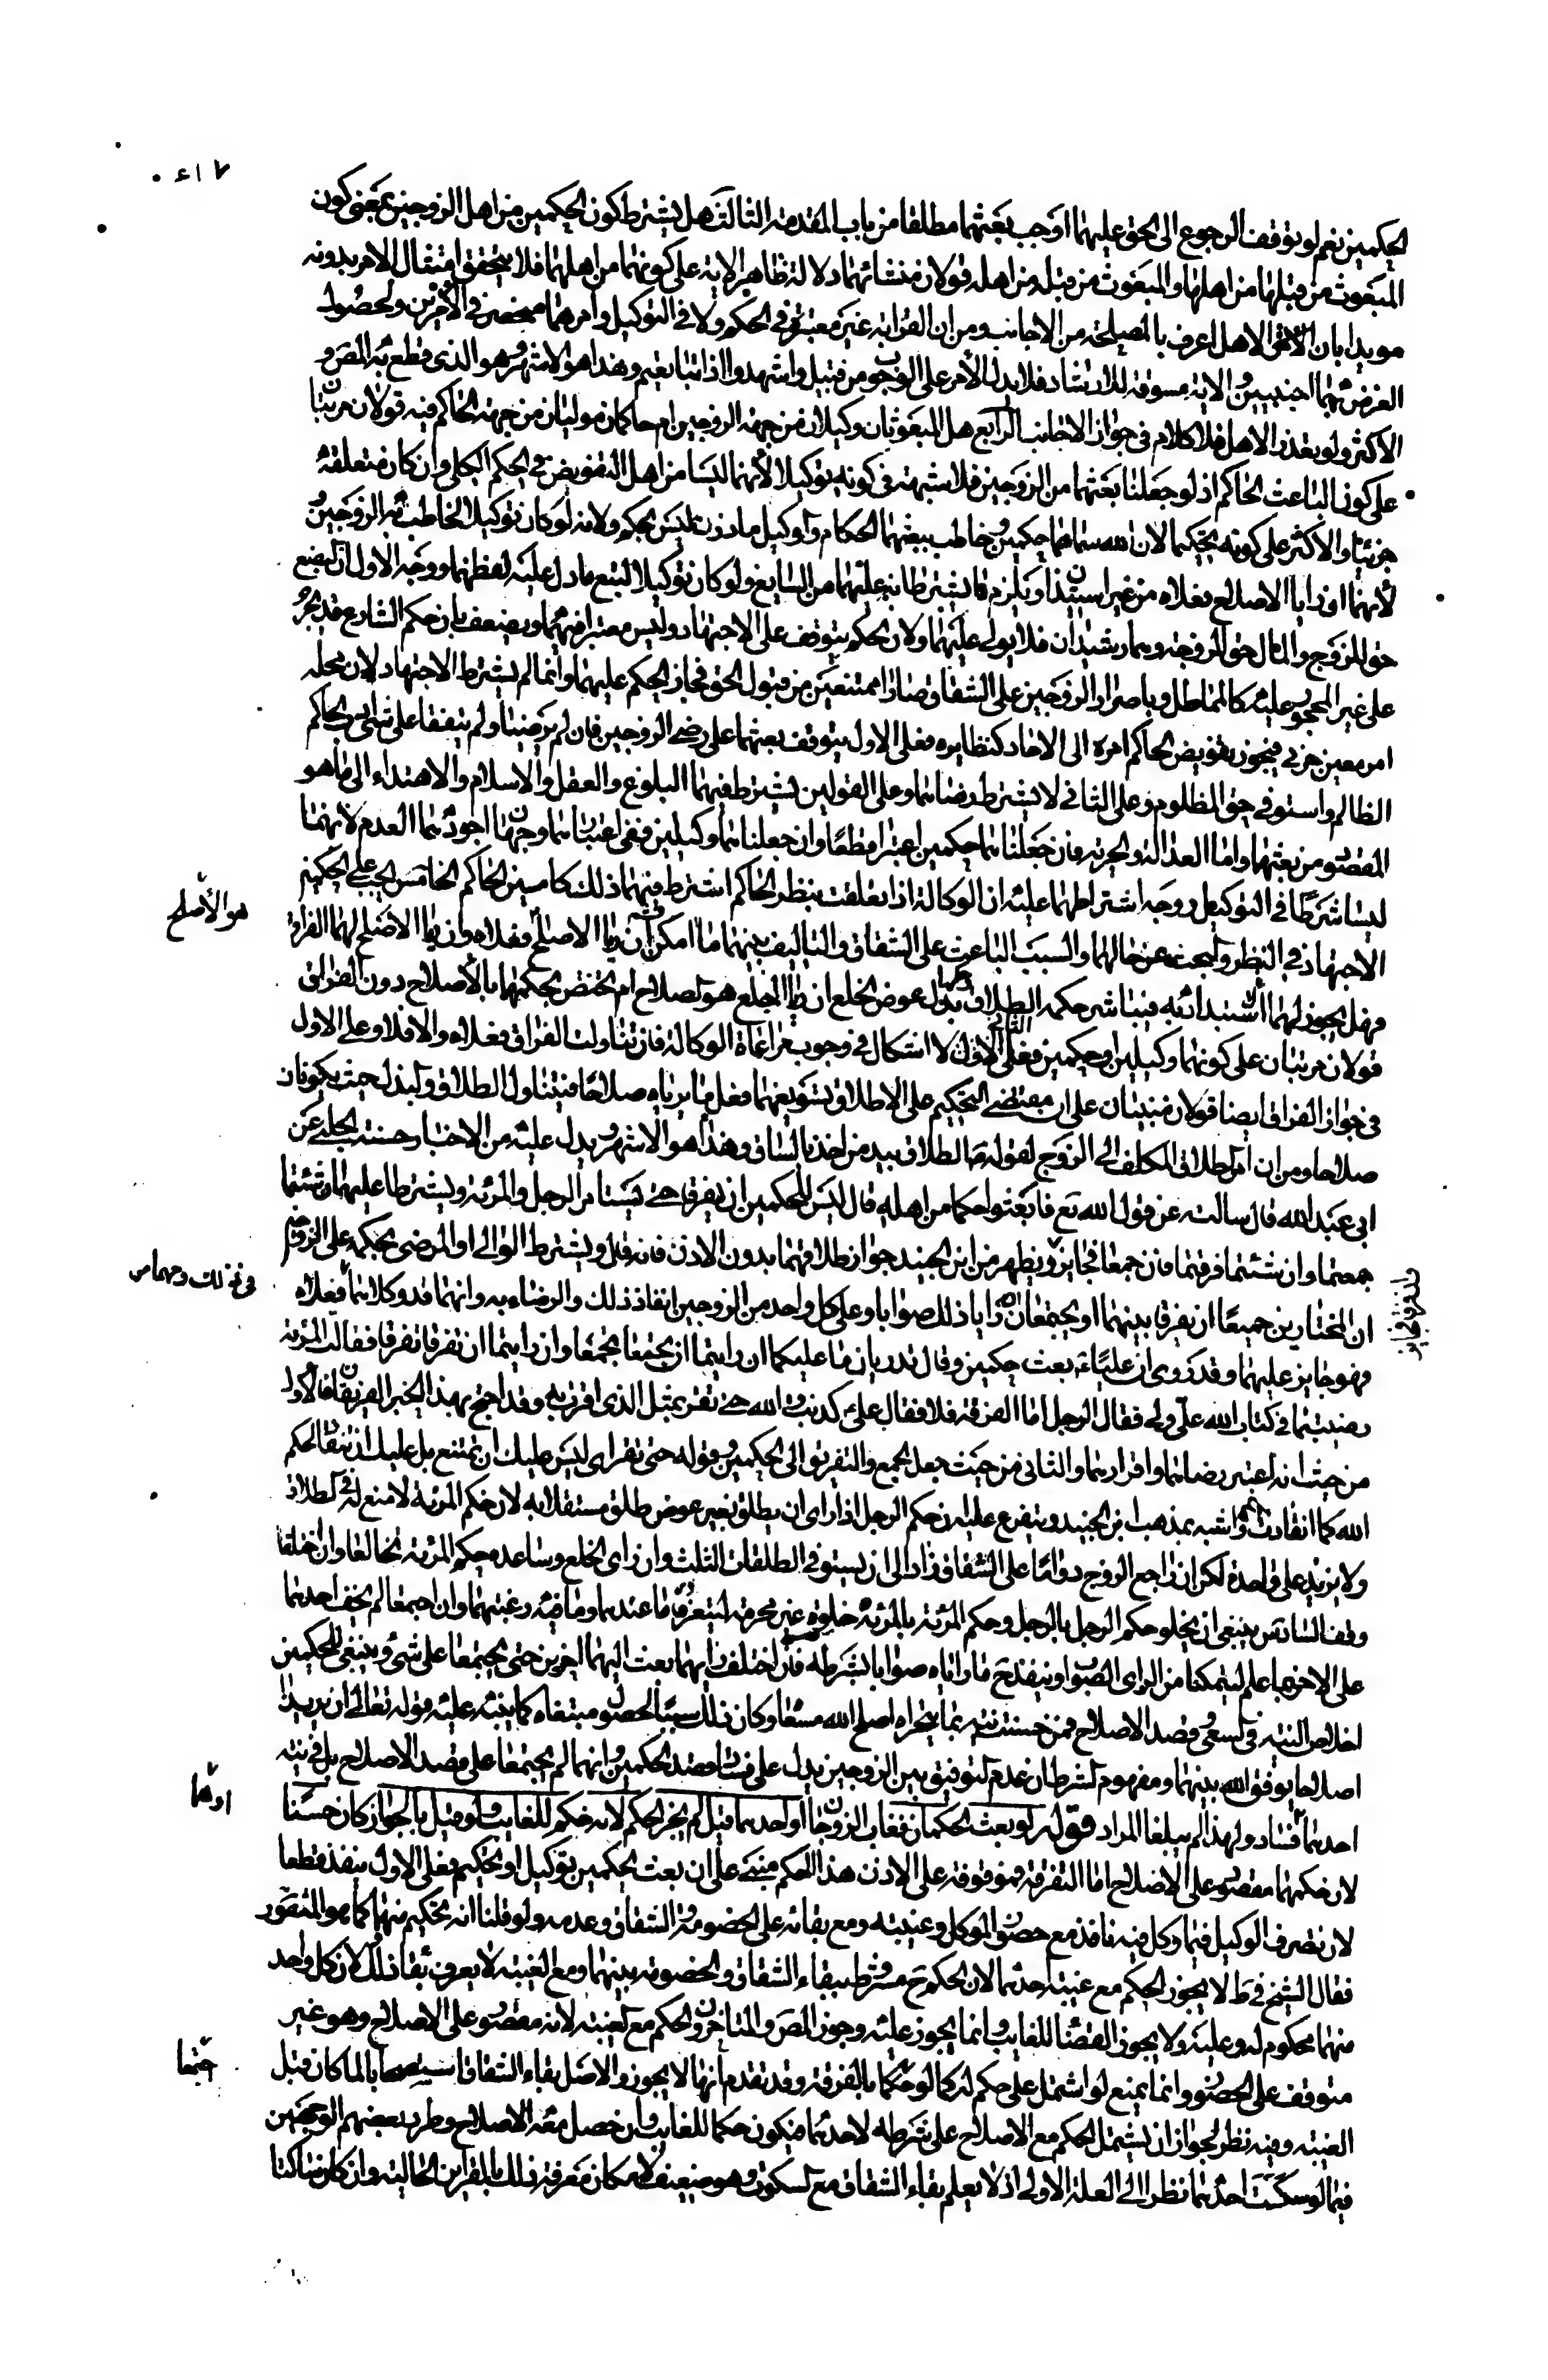 الحكمين نعم لو توقف الرجوع الى الحق عليهما وجب بعثهما مطلقا من باب المقدمة الثالث هل يشترط كون الحكمين من اهل الزوجين بمعنى كون
المبعوث من قبلها من اهلها والمبعوث من قبله من اهله قولان منشائهما دلالة ظاهر الاية على كونهما من اهلهما فلا يتحقق امتثال الامر بدونه
مويدا بان الاهل اعرف بالمصلحة من الاجانب ومن ان القرابة غير معتبرة في الحكم ولا في التوكيل وامرهما منحصر في الامرين ولحصول
الغرض بهما اجنبيين والاية مسوقة للارشاد فلا يدل الامر على الوجوب من قبيل واشهدوا اذا تبايعتم وهذا هو الاشهر وهو الذي قطع به المص و
الاكثر ولو تعذر الاهل فلا كلام في جواز الاجانب الرابع هل المبعوثان وكيلان من جهة الزوجين ام حاكمان موليان من جهة الحاكم فيه قولان مرتبان
على كون الباعث الحاكم اذ لو جعلنا بعثهما من الزوجين فلا شبهة في كونه توكيلا لانهما ليسا من اهل التفويض في الحكم الكلي وان كان متعلقه
جزئيا والاكثر على كونه تحكيما لان الله سماهما حكمين وخاطب ببعثهما الحكام والوكيل ماذون ليس بحكم ولانه لو كان توكيلا لخاطب به الزوجين
لانهما ان رايا الاصلاح فعلاه من غير استيذان ويلزم ما يشترطانه عليهما من السايغ ولو كان توكيلا لتبع ما دل عليه لفظهما ووجه الاول ان البضع
حق الزوج والمال حق الزوجة وهما رشيدان فلا يولى عليهما ولان الحكم يتوقف على الاجتهاد وليس معتبرا فيهما ويضعف بان حكم الشارع قد يجري
على غير المحجور عليه كالمماطل وباصرار الزوجين على الشقاق صارا ممتنعين من قبول الحق فجاز الحكم عليهما وانما لم يشترط الاجتهاد لان محله
امر معين جزئي فيجوز تفويض الحاكم امره الى الاحاد كنظايره فعلى الاول يتوقف بعثهما على رضى الزوجين فان لم يرضيا ولم يتفقا على شئ ادب الحاكم
الظالم واستوفى حق المظلوم وعلى الثاني لا يشترط رضاهما وعلى القولين يشترط فيهما البلوغ والعقل والاسلام والاهتداء الى ما هو
المقصود من بعثهما واما العدالة والحرية فان جعلناهما حكمين اعتبرا قطعا وان جعلناهما وكيلين ففي اعتبارهما وجهان اجودهما العدم لانهما
ليسا شرطا في التوكيل ووجه اشتراطهما عليه ان الوكالة اذا تعلقت بنظر الحاكم اشترط فيهما ذلك كامين الحاكم الخامس يجب على الحكمين
الاجتهاد في النظر والبحث عن حالهما والسبب الباعث على الشقاق والتاليف بينهما ما امكن فان رايا الاصلاح فعلاه وان رايا الاصلح لهما الفراق
هو الاصلح
فهل يجوز لهما الاستبداد به فيباشر حكمه الطلاق وحكمها بذل عوض الخلع ان رايا الخلع هو الصلاح ام يختص حكمهما بالاصلاح دون الفراق
قولان مرتبان على كونهما وكيلين او حكمين فعلى الاول لا اشكال في وجوب مراعاة الوكالة فان تناولت الفراق فعلاه والا فلا وعلى الثاني
في جواز الفراق ايضا قولان مبنيان على ان مقتضى التحكيم على الاطلاق تسويغهما فعل ما يرياه صلاحا فيتناول الطلاق والبذل حيث يكونان
صلاحا ومن ان امر طلاق المكلف الى الزوج لقوله ص الطلاق بيد من اخذ بالساق وهذا هو الاشهر ويدل عليه من الاخبار حسنة الحلبي عن
ابي عبد الله قال سالته عن قول الله تع فابعثوا حكما من اهله قال ليس للحكمين ان يفرقا حتى يستامرا الرجل والمرئة ويشترطا عليهما ان شئنا
جمعنا وان شئنا فرقنا فان جمعا فجايز ويظهر من ابن الجنيد جواز طلاقهما بدون الاذن فانه قال ويشترط الوالي او المرضي بحكمه على الزوجين
فان فرقا فجايز
ان للمختارين جميعا ان يفرقا بينهما او يجمعا ان رايا ذلك صوابا وعلى كل واحد من الزوجين انفاذ ذلك والرضاء به وانهما قد وكلاهما فما فعلاه
في ذلك
فهو جايز عليهما وقد روى ان عليا ع بعث حكمين وقال تدريان ما عليكما ان رايتما ان تجمعا تجمعا وان رايتما ان تفرقا تفرقا فقالت المرئة
رضيت بما في كتاب الله علي ولي فقال الرجل اما الفرقة فلا فقال علي ع كذبت والله حتى تقر بمثل الذي اقرت به وقد احتج بهذا الخبر الفريقان فالاول
من حيث انه اعتبر رضاهما واقرارهما والثاني من حيث جعل الجمع والتفريق الى الحكمين وقوله حتى تقر اي ليس عليك ان تمتنع بل عليك ان تنقاد لحكم
الله كما انقادت واشبه بمذهب ابن الجنيد ويتفرع عليه ان حكم الرجل اذا راى ان يطلق بغير عوض طلق مستقلا به لان حكم المرئة لا صنع له في الطلاق
ولا يزيد على واحدة لكن ان راجع الزوج وداما على الشقاق زاد الى ان يستوفي الطلقات الثلث وان راى الخلع وساعده حكم المرئة تخالعا وان اختلفا
وقف السادس ينبغي ان يخلو حكم الرجل بالرجل وحكم المرئة بالمرئة خلوة غير محرمة ليتعرفا ما عندهما وما فيه رغبتهما وان اجتمعا لم يخف احدهما
على الاخر ما علم ليتمكنا من الراي الصواب وينفذ ما راياه صوابا بشرطه فان اختلف رايهما بعث اليهما اخرين حتى يجتمعا على شئ وينبغي للحكمين
اخلاص النية في السعي وقصد الاصلاح فمن حسنت نيته بما يتحراه اصلح الله مسعاه وكان ذلك سببا لحصول مبتغاه كما ينبه عليه قوله تعالى ان يريدا
اصلاحا يوفق الله بينهما ومفهوم الشرط ان عدم التوفيق بين الزوجين يدل على فساد قصد الحكمين وانهما لم يجتمعا على قصد الاصلاح بل في نية
احدهما فساد ولهذا لم يبلغا المراد قوله لو بعث الحكمان فغاب الزوجان او احدهما قيل لم يجز الحكم لانه حكم للغايب ولو قيل بالجواز كان حسنا
او هما
لان حكمهما مقصور على الاصلاح اما التفرقة فموقوفة على الاذن هذا الحكم مبني على ان بعث الحكمين توكيل او تحكيم فعلى الاول ينفذ قطعا
لان تصرف الوكيل فيما وكل فيه نافذ مع حضور الموكل وغيبته ومع بقائه على الخصومة والشقاق وعدمه ولو قلنا انه تحكيم منهما كما هو المتصور
فقال الشيخ في ط لا يجوز الحكم مع غيبة احدهما لان الحكم ح مشروط ببقاء الشقاق والخصومة بينهما ومع الغيبة لا يعرف بقاء ذلك ولان كل واحد
منهما محكوم له وعليه ولا يجوز القضاء للغايب وانما يجوز عليه وجوز المص والمتاخرون الحكم مع الغيبة لانه مقصور على الاصلاح وهو غير
متوقف على الحضور وانما يمنع لو اشتمل على حكم له كما لو حكما بالفرقة وقد تقدم انها لا يجوز والاصل بقاء الشقاق استصحابا لما كان قبل
الغيبة وفيه نظر لجواز ان يشتمل الحكم مع الاصلاح على شرط لاحدهما فيكون حكما للغايب وان حصل معه الاصلاح وطرد بعضهم الوجهين
فيما لو سكت احدهما نظرا الى العلة الاولى اذ لا يعلم بقاء الشقاق مع السكوت وهو ضعيف لامكان معرفة ذلك بالقراين الحالية وان كان ساكتا